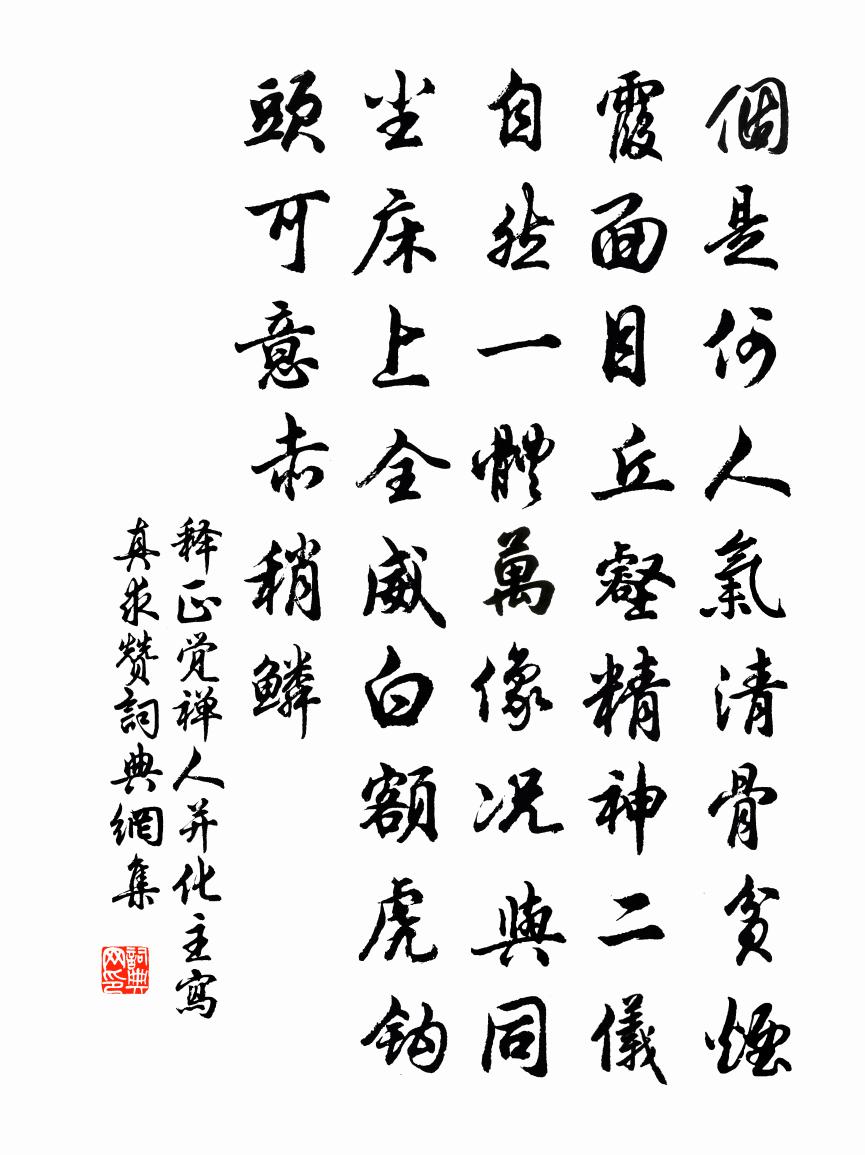 個是何人氣清骨貧煙
霞面目丘壑精神二儀
自然一體萬像況與同
坐床上全威白額虎鈎
頭可意赤稍鱗
释正觉禅人并化主寫
真求赞詞典網集
詞典网印